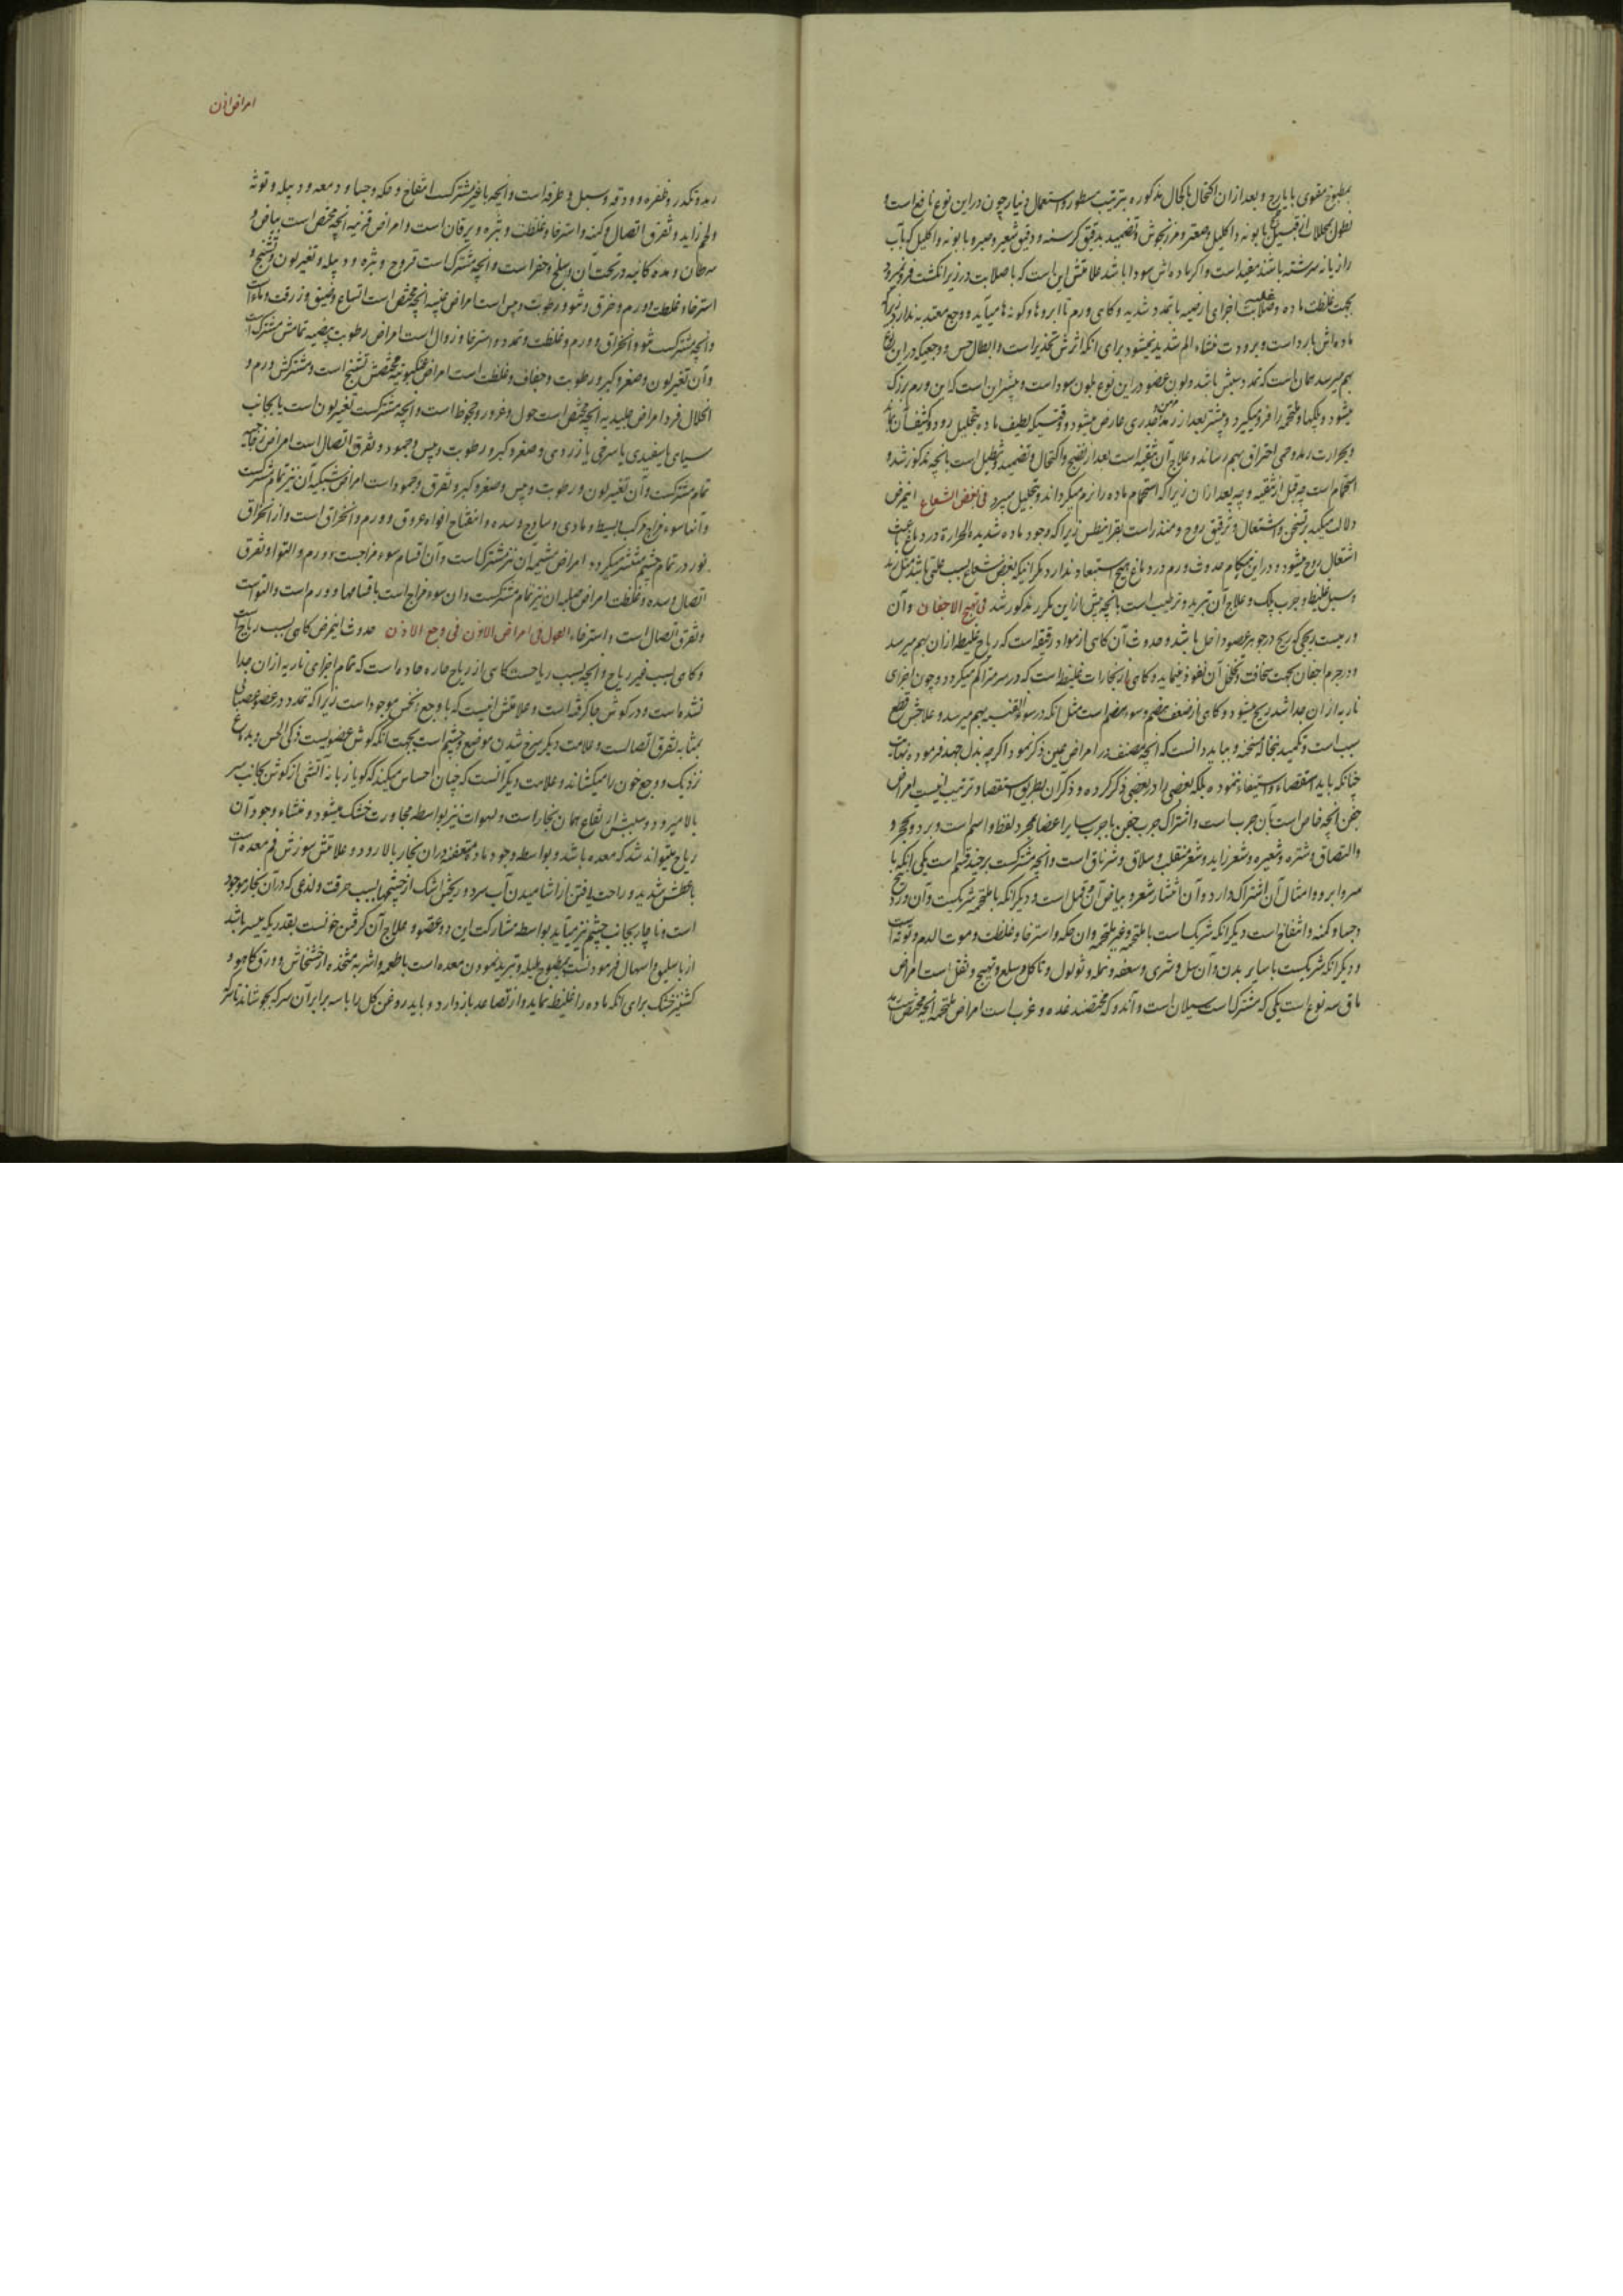 بمطبوخ مقوی بایارج و بعد ازان اکتحال باکحال مذکوره بترتیب مسطور و استعمال دنیارجون دراین نوع نافع است و
نطول محللات از قبیل بابونه و اکلیل و صعتر و مرزنجوش و تضمید بدقیق کرسنه و دقیق شعیر و صبر و بابونه و اکلیل که بآب
رازیانه سرشته باشند مفید است و اکر ماده اش سودا باشد علامتش این است که با صلابت در زیر انکشت فرو نمیرود
بجهت غلظت ماده و صلابت اجزای ارضیه با تمدد شدید و کاهی ورم تا ابروها و کونه ها میآید و وجع معتد به ندارد زیراکه
ماده اش بارد است و برودت منشاء الم شدید نمیشود برای انکه اثرش تخذیر است و ابطال حس و وجعیکه در این نوع
بهم میرسد همان است که تمدد سببش باشد و لون عضو در این نوع بلون سودا است و بیشتر این است که این ورم بزرک
میشود و پلکها و ملتحمه را فرو میکیرد و بیشتر بعد از رمد و جدری عارض میشود وقتیکه لطیف ماده بتحلیل رود و کثیف آن بماند
و بحرارت رمد و حمی احتراق بهم رساند و علاج آن تنقیه است بعد از نضج و اکتحال و تضمید و تنطیل است بانچه مذکور شد و
استحمام است چه قبل از تنقیه و چه بعد ازان زیرا که استحمام ماده را نرم میکرداند و بتحلیل میبرد فی بغض الشعاع اینمرض
دلالت میکند بر تسخن و اشتعال و ترقیق روح و منذر است بقرانیطس زیرا که وجود ماده شدیدة الحرارة در دماغ باعث
اشتعال روح میشود و در این هنکام حدوث ورم در دماغ هیچ استبعاد ندارد مکر انیکه بغض شعاع بسبب علتی باشد مثل رمد
و سبل غلیظ و جرب پلک و علاج آن تبرید و ترطیب است بانچه پیش ازاین مکرر مذکور شد فی تهیج الاجفان و آن
ورمیست ریحی که ریح در جوهر عضو داخل باشد و حدوث آن کاهی از مواد رقیقه است که ریاح غلیظه ازان بهم میرسد
و در جرم اجفان بجهت سخافت و تخلخل آن نفوذ مینماید و کاهی از بخارات غلیظه است که در سر متراکم میکردد و چون اجزای
ناریه ازان جدا شد ریح میشود و کاهی از ضعف هضم و سوء هضم است مثل انکه در سوء القنیه بهم میرسد و علاجش قطع
سبب است و تکمید بنخاله مسخنه و بباید دانست که آنچه مصنف در امراض عین ذکر نمود اکر چه بذل جهد فرموده نهایت
چنانکه باید استقصاء و استیفاء ننموده بلکه بعضی را در بعضی ذکر کرده و ذکر آن بطریق استقصاء و ترتیب اینست امراض
جفن آنچه خاص است بآن جرب است و اشتراک جرب جفن با جرب سایر اعضا بمجرد لفظ و اسم است و برد و تحجر و
والتصاق و شتره و شعیره و شعر زاید و شعر منقلب و سلاق و شرناق است و انچه مشترکست بر چند قسم است یکی انکه با
سر و ابرو و امثال آن اشتراک دارد و آن انتشار شعر و بیاض آن و قمل است و دیکر انکه با ملتحمه شریکست و آن وردینج
و جسا و کمنه و انتفاخ است دیکر انکه شریکست با ملتحمه و غیر ملتحمه و ان حکه و استرخا و غلظت و موت الدم و توثه است
و دیکر انکه شریکست با سایر بدن و آن سل و شری و سعفه و نمله و ثولول و تاکل و سلع و تهیج و ثقل است امراض
ماق سه نوع است یکی که مشترک است سیلان است و آندو که مختصند غده و غرب است امراض ملتحمه انچه مختص است
امراض اذن
رمد و تکدر و ظفره و ودقه و سبل و طرفه است و انچه با غیر مشترکست انتفاخ و حکه و جسا و دمعه و دبیله و توثه
ولحم زاید و تفرق اتصال و کمنه و استرخا و غلظت و بثره و یرقان است و امراض قرنیه انچه مختص است بیاض و
سرطان و مده کائنه در تحت آن و سلخ و حفر است و انچه مشترک است قروح و بثره و دبیله و تغیر لون و تشنج و
استرخاء و غلظت و ورم و خرق و نتو و رطوبت و یبس است امراض عنبیه انچه مختص است اتساع و ضیق و زرقت و ماء است
وانچه مشترکست نتو و انخراق و ورم و غلظت و تمدد و استرخا و زوال است امراض رطوبت بیضیه تمامش مشترک است
و آن تغیر لون و صغر و کبر و رطوبت و جفاف و غلظت است امراض عنکبوتیه مختصش تشنج است و مشترکش ورم و
انحلال فرد امراض جلیدیه انچه مختص است حول و غور و جحوظ است و انچه مشترکست تغیر لون است یا بجانب
سیاهی یا سفیدی یا سرخی یا زردی و صغر و کبر و رطوبت و یبس و جمود و تفرق اتصال است امراض زجاجیه
تمام مشترکست و آن تغیر لون و رطوبت و یبس و صغر و کبر و تفرق و جمود است امراض شبکیه آن نیز تمام مشترکست
و آنها سوء مزاج مرکب بسیط و مادی و ساذج و سده و انفتاح افواه عروق و ورم و انخراق است و از انخراق
نور در تمام چشم منتشر میکردد امراض مشیمیه آن نیز مشترک است و آن اقسام سوء مزاجست و ورم و التواء و تفرق
اتصال و سده و غلظت امراض صلبیه ان نیز تمام مشترکست و ان سوء مزاج است باقسامها و ورم است و التواست
و تفرق اتصال است و استرخاء القول فی امراض الاذن فی وجع الاذن حدوث اینمرض کاهی بسبب ریاح است
و کاهی بسبب غیر ریاح و انچه بسبب ریاحست کاهی از ریاح حاره حاده است که تمام اجزای ناریه ازان جدا
نشده است و در کوش جا کرفته است و علامتش اینست که با وجع نخس موجود است زیرا که تمدد در عضو عصبانی
بمثابه تفرق اتصالست و علامت دیکر سرخ شدن موضع و چشم است بجهت آنکه کوش عضویست ذکی الحس و بدماغ
نزدیک و وجع خون را میکشاند و علامت دیکر آنست که چنان احساس میکند که کویا زبانه آتشی از کوش بجانب سر
بالا میرود و سببش ارتفاع همان بخار است و لهوات نیز بواسطه مجاورت خشک میشود و منشاء وجود آن
ریاح میتواند شد که معده باشد و بواسطه وجود ماده متعفنه دران بخار بالا رود و علامتش سوزش فم معده است
با عطش شدید و راحت یافتن از اشامیدن آب سرد و ریختن اشک از چشمها بسبب حرقت و لذعی که در آن بخار موجود
است و ناچار بجانب چشم نیز میآید بواسطه مشارکت این دو عضو و علاج آن کرفتن خونست بقدریکه میسر باشد
از باسلیق و اسهال فرمودنست بمطبوخ هلیله و تبرید نمودن معده است باطعمه و اشربه متخذه از خشخاش و ورق کاهو و
کشنیز خشک برای انکه ماده را غلیظ نماید و از تصاعد باز دارد و باید روغن کل را با سه برابر آن سرکه بجوشانند تا سرکه